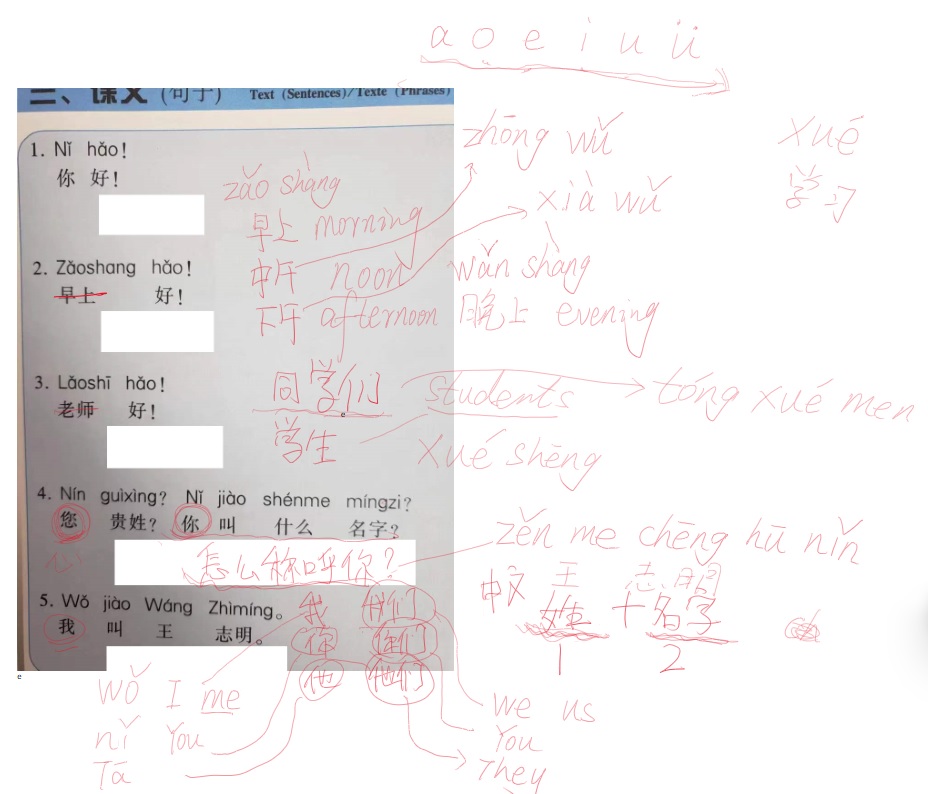 a o e i u ü
三、课文 (句子) Text (Sentences)/Texte (Phrases)
1. Nǐ hǎo!
你 好!
zǎo shàng
早上 morning
中午 noon
下午 afternoon
zhōng wǔ
xià wǔ
wǎn shàng
晚上 evening
xué
学习
2. Zǎoshang hǎo!
早上 好!
3. Lǎoshī hǎo!
老师 好!
同学们 students
tóng xué men
学生
xué shēng
4. Nín guìxìng? Nǐ jiào shénme míngzi?
您 贵姓? 你 叫 什么 名字?
怎么称呼你?
zěn me chēng hū nǐn
5. Wǒ jiào Wáng Zhìmíng。
我 叫 王 志明。
王 志明
中文 姓 + 名字
1 2
我 我们
你 你们
他 他们
wǒ I me
nǐ You
Tā
we us
You
They
e
e